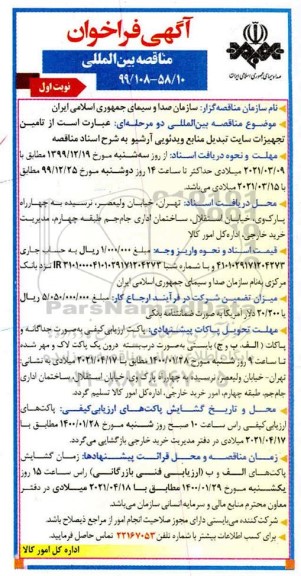 صدا و سیمای جمهوری اسلامی ایران
آگهی فراخوان
مناقصه بین المللی
۹۹/۱۰۸-۵۸/۱۰
نوبت اول
نام سازمان مناقصه‌گزار: سازمان صدا و سیمای جمهوری اسلامی ایران
موضوع مناقصه بین‌المللی دو مرحله‌ای: عبارت است از تامین
تجهیزات سایت تبدیل منابع ویدئویی آرشیو به شرح اسناد مناقصه
مهلت و نحوه دریافت اسناد: از روز سه‌شنبه مورخ ۱۳۹۹/۱۲/۱۹ مطابق با
۲۰۲۱/۰۳/۰۹ میلادی حداکثر تا ساعت ۱۴ روز دوشنبه مورخ ۹۹/۱۲/۲۵ مطابق
با ۲۰۲۱/۰۳/۱۵ میلادی می‌باشد.
محل دریافت اسناد: تهران، خیابان ولیعصر، نرسیده به چهارراه
پارک‌وی، خیابان استقلال، ساختمان اداری جام‌جم طبقه چهارم، مدیریت
خرید خارجی، اداره‌کل امور کالا
قیمت اسناد و نحوه واریز وجه: مبلغ ۱/۰۰۰/۰۰۰ ریال به حساب جاری
نزد بانک
مرکزی به‌نام سازمان صدا و سیمای جمهوری اسلامی ایران
میزان تضمین شرکت در فرآیند ارجاع کار: مبلغ ۵/۰۵۰/۰۰۰/۰۰۰ ریال
یا ۲۰/۲۰۰ دلار آمریکا به صورت ضمانتنامه بانکی
مهلت تحویل پاکات پیشنهادی: پاکت ارزیابی کیفی به‌صورت جداگانه و
پاکات (الف، ب و ج) بایستی به‌صورت دربسته درون یک پاکت لاک و مهر شده
تا ساعت ۹ روز شنبه مورخ ۱۴۰۰/۰۱/۲۸ مطابق با ۲۰۲۱/۰۴/۱۷ میلادی به نشانی
تهران- خیابان ولیعصر نرسیده به چهارراه پارک وی خیابان استقلال، ساختمان اداری
جام‌جم، طبقه چهارم، امور خرید خارجی، اداره‌کل امور کالا تسلیم گردد.
محل و تاریخ گشایش پاکت‌های ارزیابی‌کیفی: پاکت‌های
ارزیابی کیفی راس ساعت ۱۰ صبح روز شنبه مورخ ۱۴۰۰/۰۱/۲۸ مطابق با
۲۰۲۱/۰۴/۱۷ میلادی در دفتر مدیریت خرید خارجی بازگشایی می‌گردد.
زمان مناقصه و محل قرائت پیشنهادها: زمان گشایش
پاکت‌های الف و ب (ارزیابی فنی بازرگانی) راس ساعت ۱۵ روز
یکشنبه مورخ ۱۴۰۰/۰۱/۲۹ مطابق با ۲۰۲۱/۰۴/۱۸ میلادی در دفتر
معاون محترم منابع مالی و سرمایه انسانی سازمان می‌باشد.
شرکت‌کننده می‌بایستی دارای مجوز صلاحیت انجام امور از مراجع ذیصلاح باشد.
برای کسب اطلاعات بیشتر با شماره تلفن ۲۲۱۶۷۰۵۳ تماس حاصل فرمایید.
اداره کل امور کالا